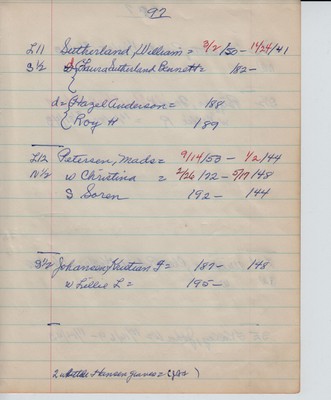 97
L11 Sutherland, William = 2/2/50 - 14/24/41
S 1/2 d Laura Sutherland Bennett = 182-
d = Hazel Anderson = 188
{ Roy H 189
L12 Petersen, Mads = 9/14/53 - 1/2/44
N 1/2 w Christina = 2/26/72 - 5/17/48
S Soren 192 - 144
S 1/2 Johansen, Kristian J = 187 - 148
w Lillie L = 195 -
Hansen graves =